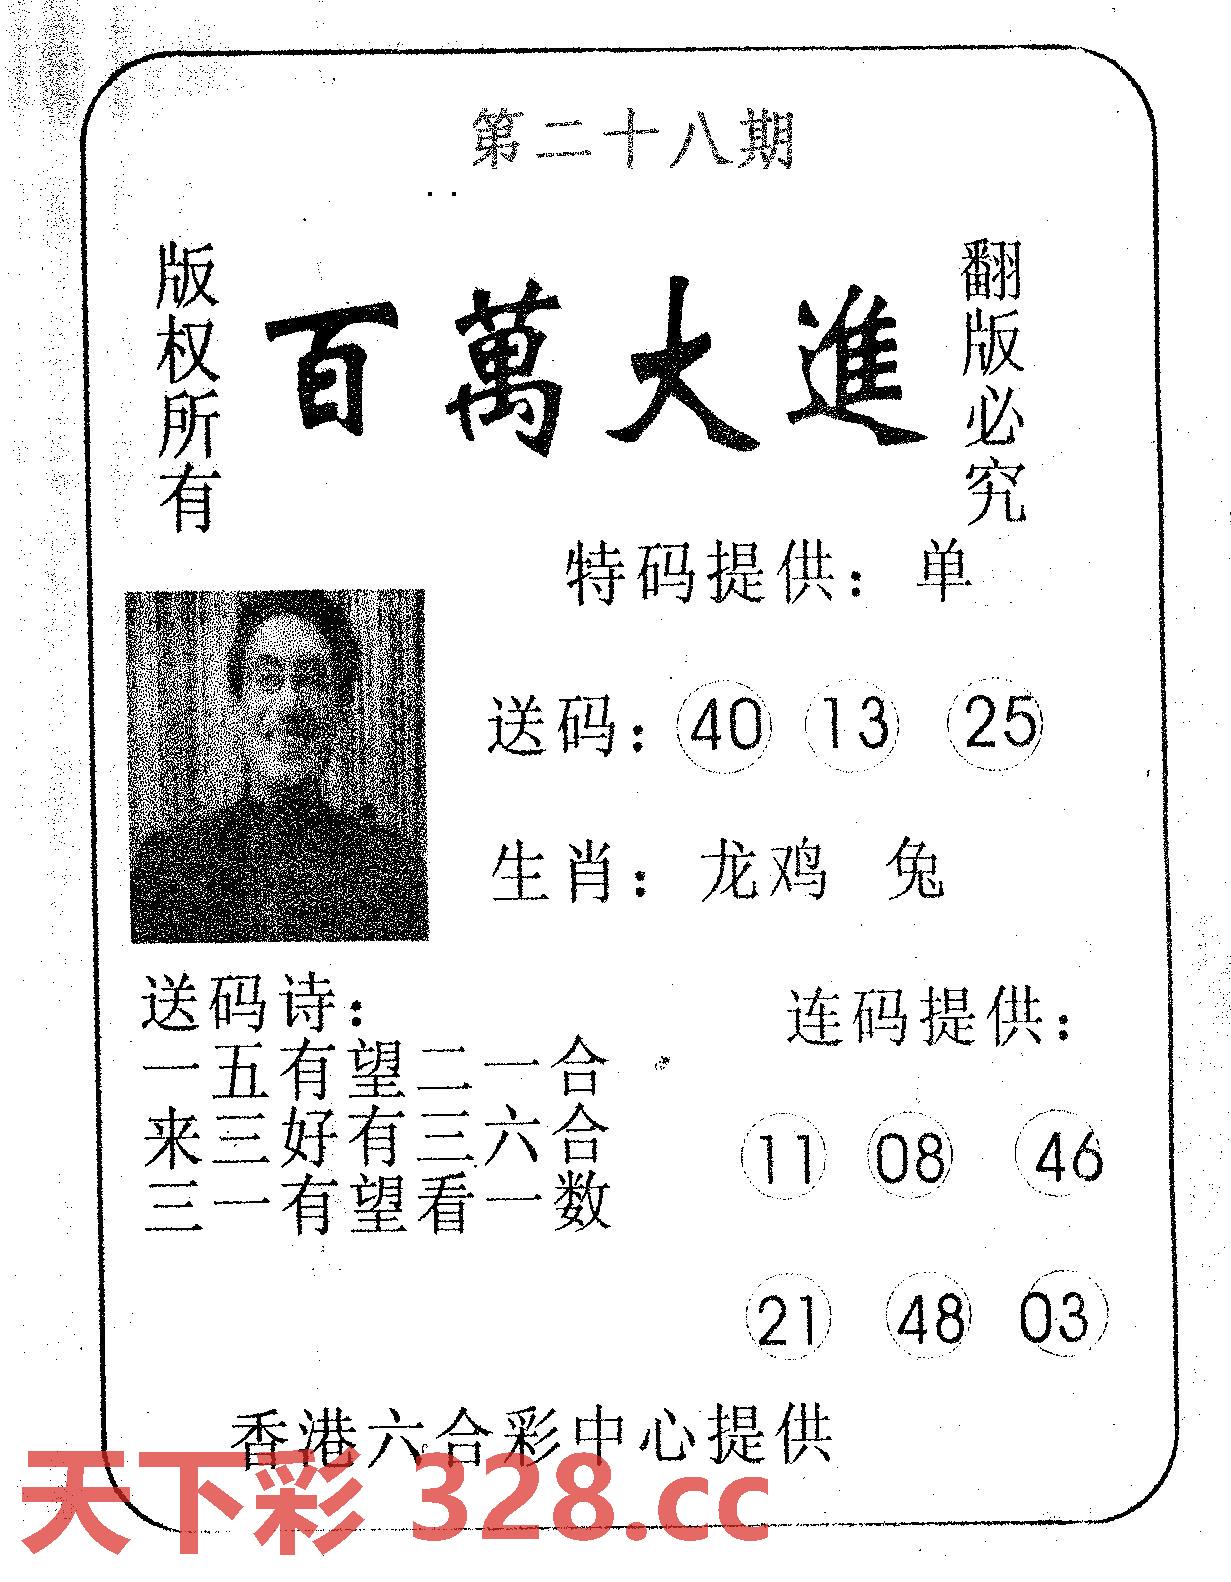 第二十八期
版权所有
百萬大進
翻版必究
特码提供：单
送码：40 13 25
生肖：龙鸡 兔
送码诗：
一五有望二一合
来三好有三六合
三一有望看一数
连码提供：
11 08 46
21 48 03
香港六合彩中心提供
天下彩 328.cc